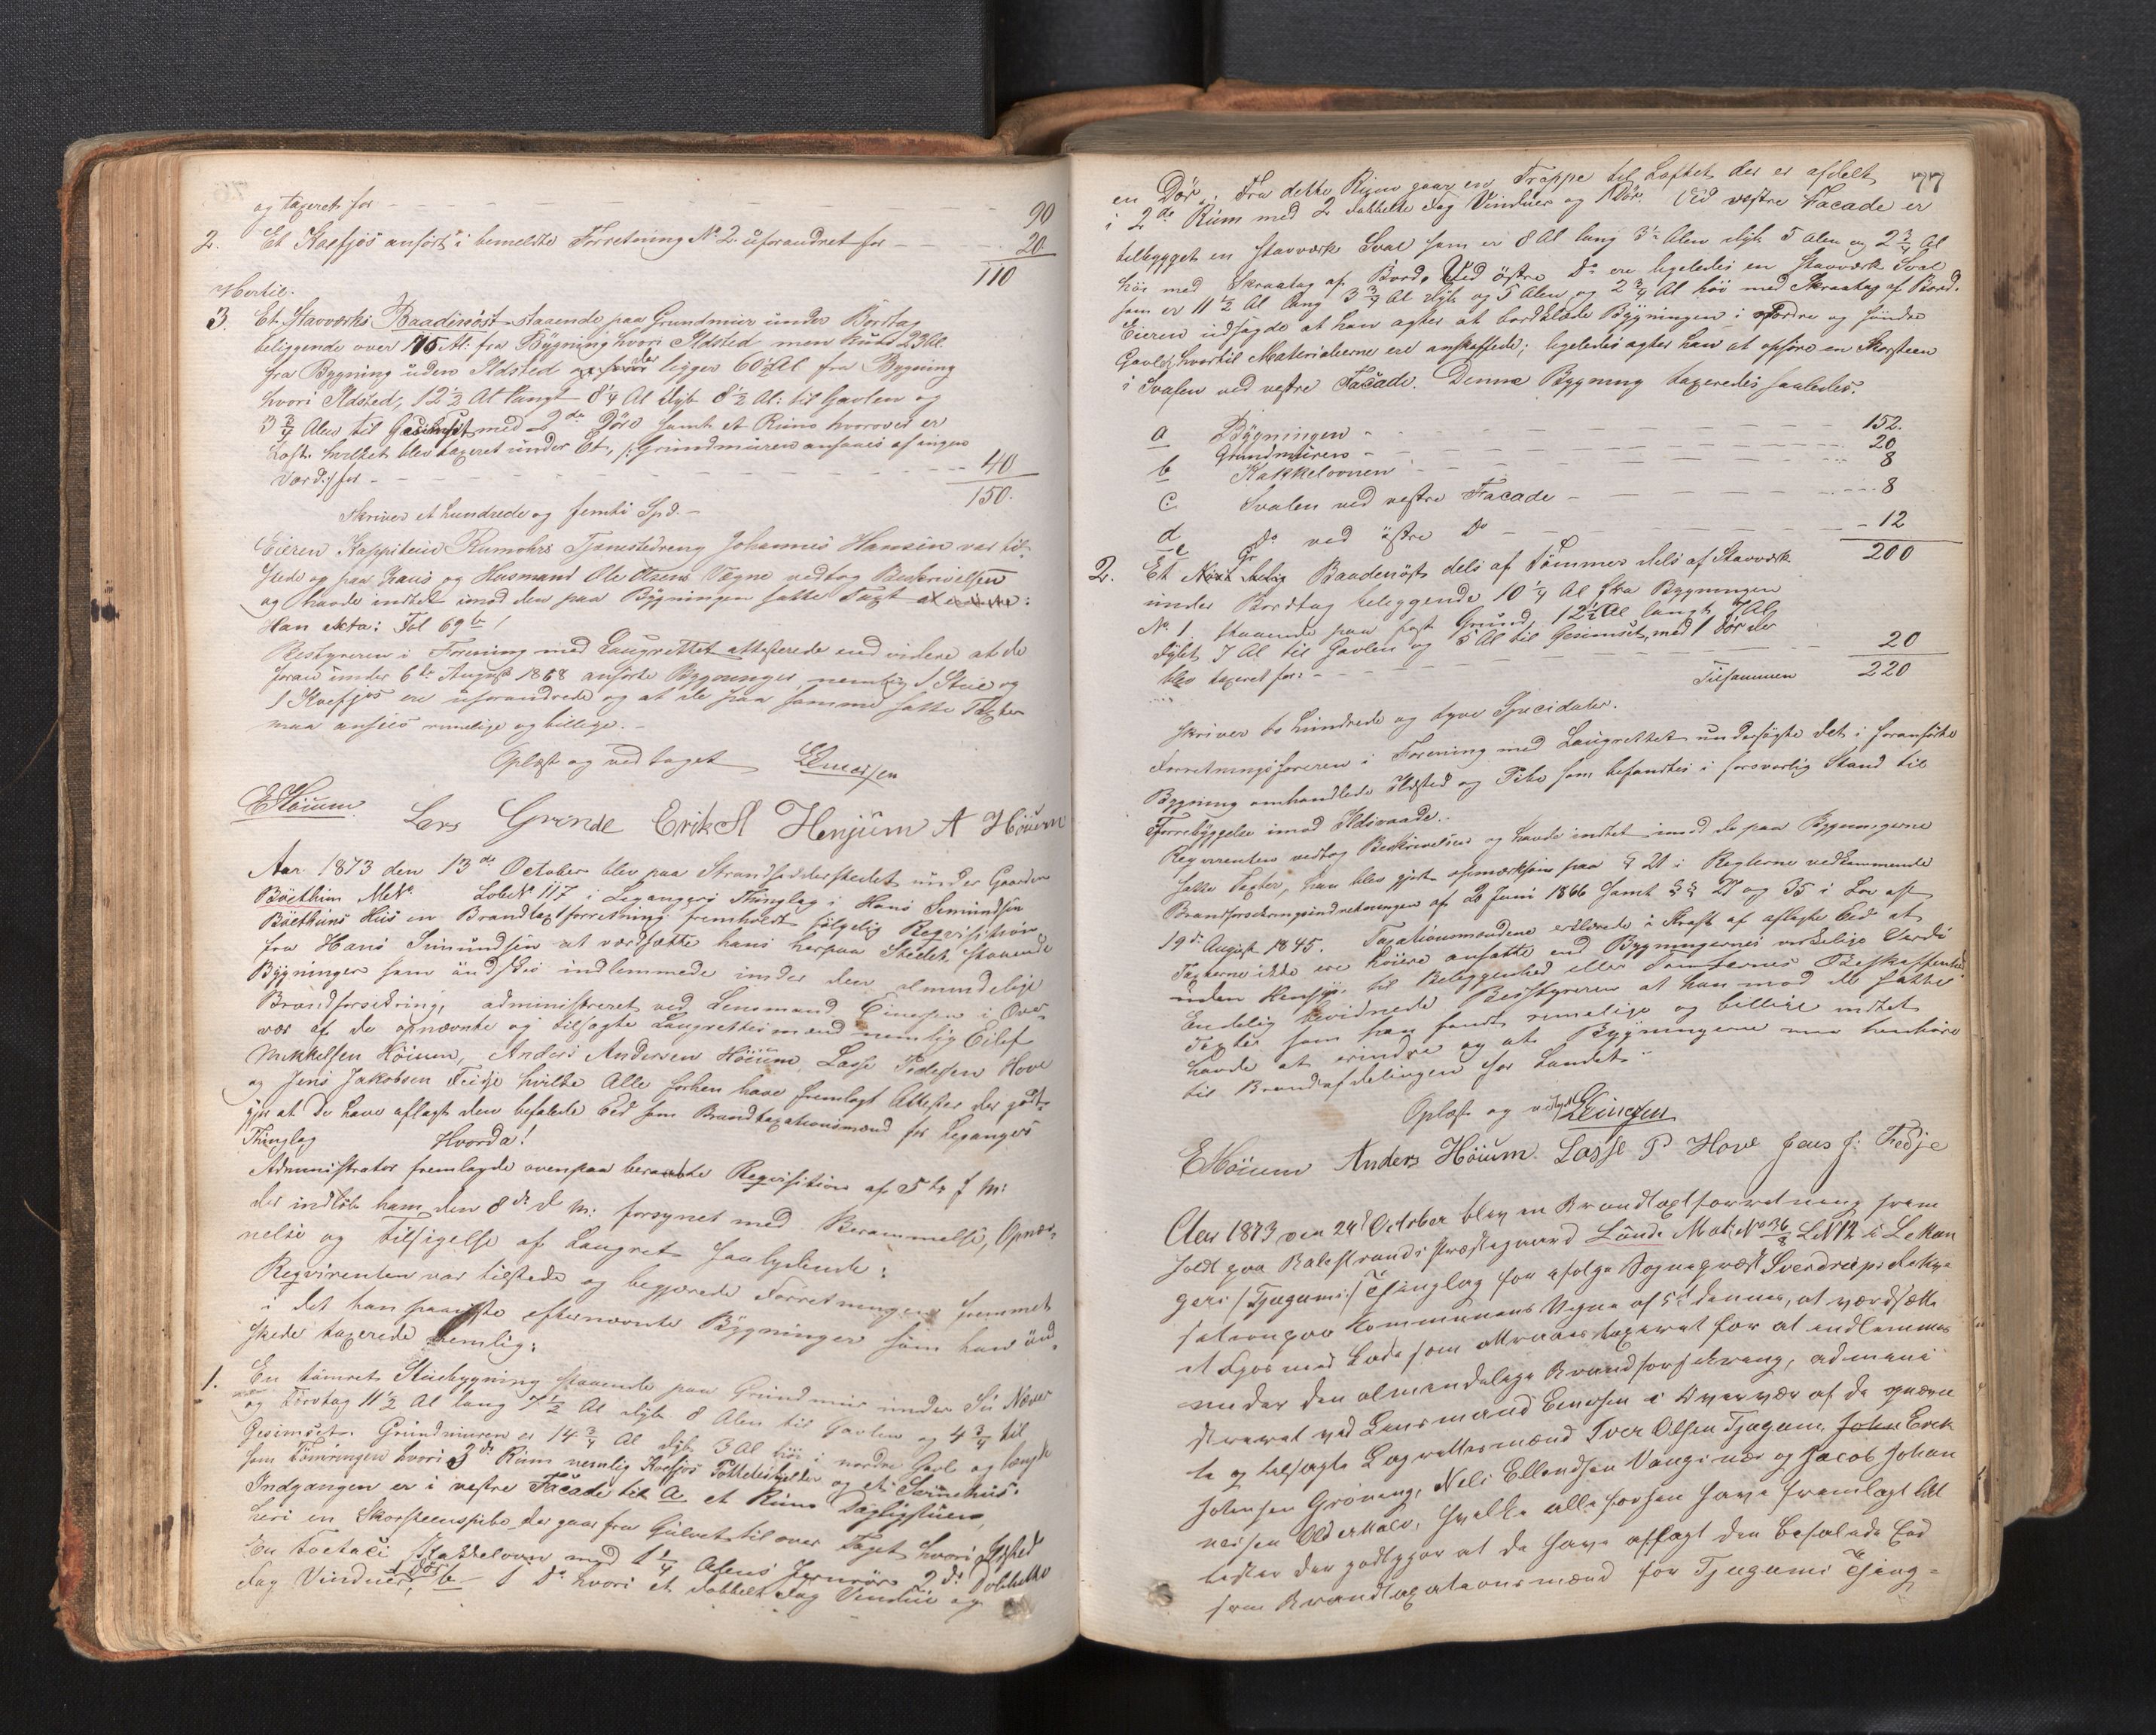 og taxeret for - - - - - 90
2. Et Koefjøs anført i bemeldte Forretning No 2 uforandret for - - 20
110
Hertil.
3. Et Stavværks Baadenøst staaende paa Grundmuur under Bordtag
beliggende over 175 Al: fra Bygning hvori Ildsted men kuns 23 Al.
fra Bygning uden Ildsted der ligger 60 Al fra Bygning
hvori Ildsted, 12 1/2 Al langt 8 1/4 Al dyb 8 1/2 Al: til Gavlen og
3 3/4 Alen til Gesimset med 2de Døre samt et Rum hvorover er
Loft. hvilket blev taxeret under Et, /: Grundmuren ansaaes af ingen
Værd :/ for - - - - - 40
150.
Skriver et hundrede og femti Spd. -
Eieren Kappitein Rumohrs Tjenestedreng Johannes Hansen var til-
stede og paa hans og Husmand Ole Olsens Vegne vedtog Beskrivelsen
og havde indtet imod den paa Bygningen satte Taxt
Han
Bestyreren i Forening med Laugrettet attesterede end videre at de
foran under 6te August 1868 anførte Bygninger, nemlig 1 Stue og
1 Koefjøs ere uforandrede og at de paa samme satte Taxter
maa ansees rimelige og billige. -
Oplæst og vedtaget Einersen
E Høium Lars Grinde Erik A Henjum A Høium
Aar 1873 den 13de October blev paa Strandsidderstedet under Gaarden
Bøethun M No. Løbe No 117 i Leganger Thinglag i Hans Simundsen
Bøethuns Huus en Brandtaxtforretning fremholdt følgelig Reqvisition
fra Hans Simundsen at værdsætte hans herpaa Stedet staaende
Bygninger som ønskes indlemmede under den almindelige
Brandforsikring, administreret ved Lensmand Einersen i Over-
vær af de opnævnte og tilsagte Laugrettesmænd nemlig Eilef
Mikkelsen Høium, Anders Andersen Høium, Lasse Pedersen Hove
og Jens Jakobsen Feidje hvilke Alle forhen have fremlagt Attester der godt-
gjør at De have aflagt den befalede Eed som Brandtaxationsmænd for Legangers
Thinglag Hvorda!
Administrator fremlagde ovenpaa beraabte Reqvisition af 5te f M:
der indløb ham den 8de d M: forsynet med Berammelse, Opnæv-
nelse og Tilsigelse af Laugret saalydende:
Reqvirenten var tilstede og begjærede Forretningen fremmet
i det han paaviste efternævnte Bygninger som han øn-
skede taxerede nemlig:
1. En tømret Stuebygning staaende paa Grundmuur under Næver
og Torvtag 11 1/2 Al lang 7 1/2 Al dyb 8 Alen til Gavlen og 4 3/4 til
Gesimset. Grundmuren er 14 3/4 Al dyb 3 Al høi i nordre Gavl og længde
som Tømringen hvori 3de Rum nemlig Koefjøs Pottetiskjelder og et Sviinehuus.
Indgangen er i vestre Facade til a et Rum Dagligstuen,
heri en Skorsteenspibe der gaar fra Gulvet til over Taget hvori Ildsted
En Toetasi Kakkelovn med 1 1/4 Alens Jernrør 2de Dobbelte
Fag Vinduer, b 1 do hvori et dobbelt Fag Vindue og
77
en Dør. Fra dette Rum gaar en Trappe til Loftet der er afdelt
i 2de Rum med 2 dobbelte Fag Vinduer og 1 Dør. Ved vestre Facade er
tilbygget en Stavværk Sval som er 8 Al lang 3 1/2 Alen dyb 5 Alen og 2 3/4 Al
høi med Skraatag af Bord. Ved østre do ere ligeledes en Stavværk Sval
som er 11 1/2 Al lang 3 3/4 Al dyb og 5 Alen og 2 3/4 Al høi med Skraatag af Bord.
Eieren udsagde at han agter at bordklæde Bygningen i nordre og søndre
Gavle, hvortil Materialierne ere anskaffede; ligeledes agter han at opføre en Skorsteen
i Svalen ved vestre Facade. Denne Bygning taxeredes saaledes.
a Bygningen - - - 152.
Grundmuren - - - 20
b Kakkelovnen - - - 8
c Svalen ved vestre Facade - - - 8
d do ved østre do - - - 12
200
2. Et Baadenøst dels af Tømmer dels af Stavværk
under Bordtag beliggende 10 1/4 Al fra Bygningen
No 1 staaende paa fast Grund, 12 1/2 Al langt, 7 Al
dybt 7 Al til Gavlen og 5 Al til Gesimset, med 1 Dør der
blev taxeret for: - - - 20
Tilsammen 220
Skriver to hundrede og tyve Specidaler.
Forretningsføreren i Forening med Laugrettet undersøgte det i foranførte
Bygning omhandlede Ildsted og Pibe som befandtes i forsvarlig Stand til
Forrebyggelse imod Ildsvaade.
Reqvirenten vedtog Beskrivelsen og havde indtet imod de paa Bygningerne
satte Taxter, han blev gjort opmærksom paa § 21 i Reglerne vedkommende
Brandforsikringsindretningen af 20 Juni 1866 samt §§ 27 og 35 i Lov af
19de August 1845. Taxationsmændene erklærede i Kraft af aflagte Eed at
Taxterne ikke ere høiere ansatte end Bygningernes virkelige Værdi
uden Hensyn til Beliggenhed eller Tomternes Beskaffenhed.
Endelig bevidnede Bestyreren at han mod de satte
Taxter som han fandt rimelige og billige indtet
havde at erindre og at Bygningerne maa henhøre
til Brandafdelingen for Landet. -
Oplæst og vedtaget Einersen
E Høium Anders Høium. Lasse P Hove Jens J: Fedje
Aar 1873 den 24de October blev en Brandtaxtforretning frem
holdt paa Balestrands Præstegaard Lunde Mat: No 36/8 L No 12 i Lekan
gers / Tjugums / Thinglag for efølge Sognepræst Sverdrups Rekvi
sition paa Kommunens Vegne af 5te dennes, at værdsætte
et Fjøs med Lade som attraaes taxeret for at indlemmes
under den almindelige Brandforsikring, admini
streret ved Lensmand Einersen i Overvær af de opnævn
te og tilsagte Lagrettesmænd Iver Olsen Tjugum, John Erik
Johnsen Grøneng, Nels Ellendsen Vangsnæs og Jacob Johan
nesen , hvilke alle forhen have fremlagt At
tester der godtgjør at de have aflagt den befalede Eed
som Brandtaxationsmænd for Tjugums Thing-